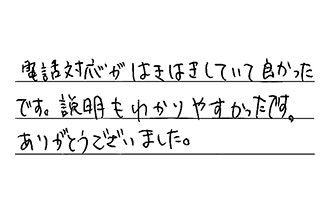 電話対応がはきはきしていて良かった
です。説明もわかりやすかったです。
ありがとうございました。